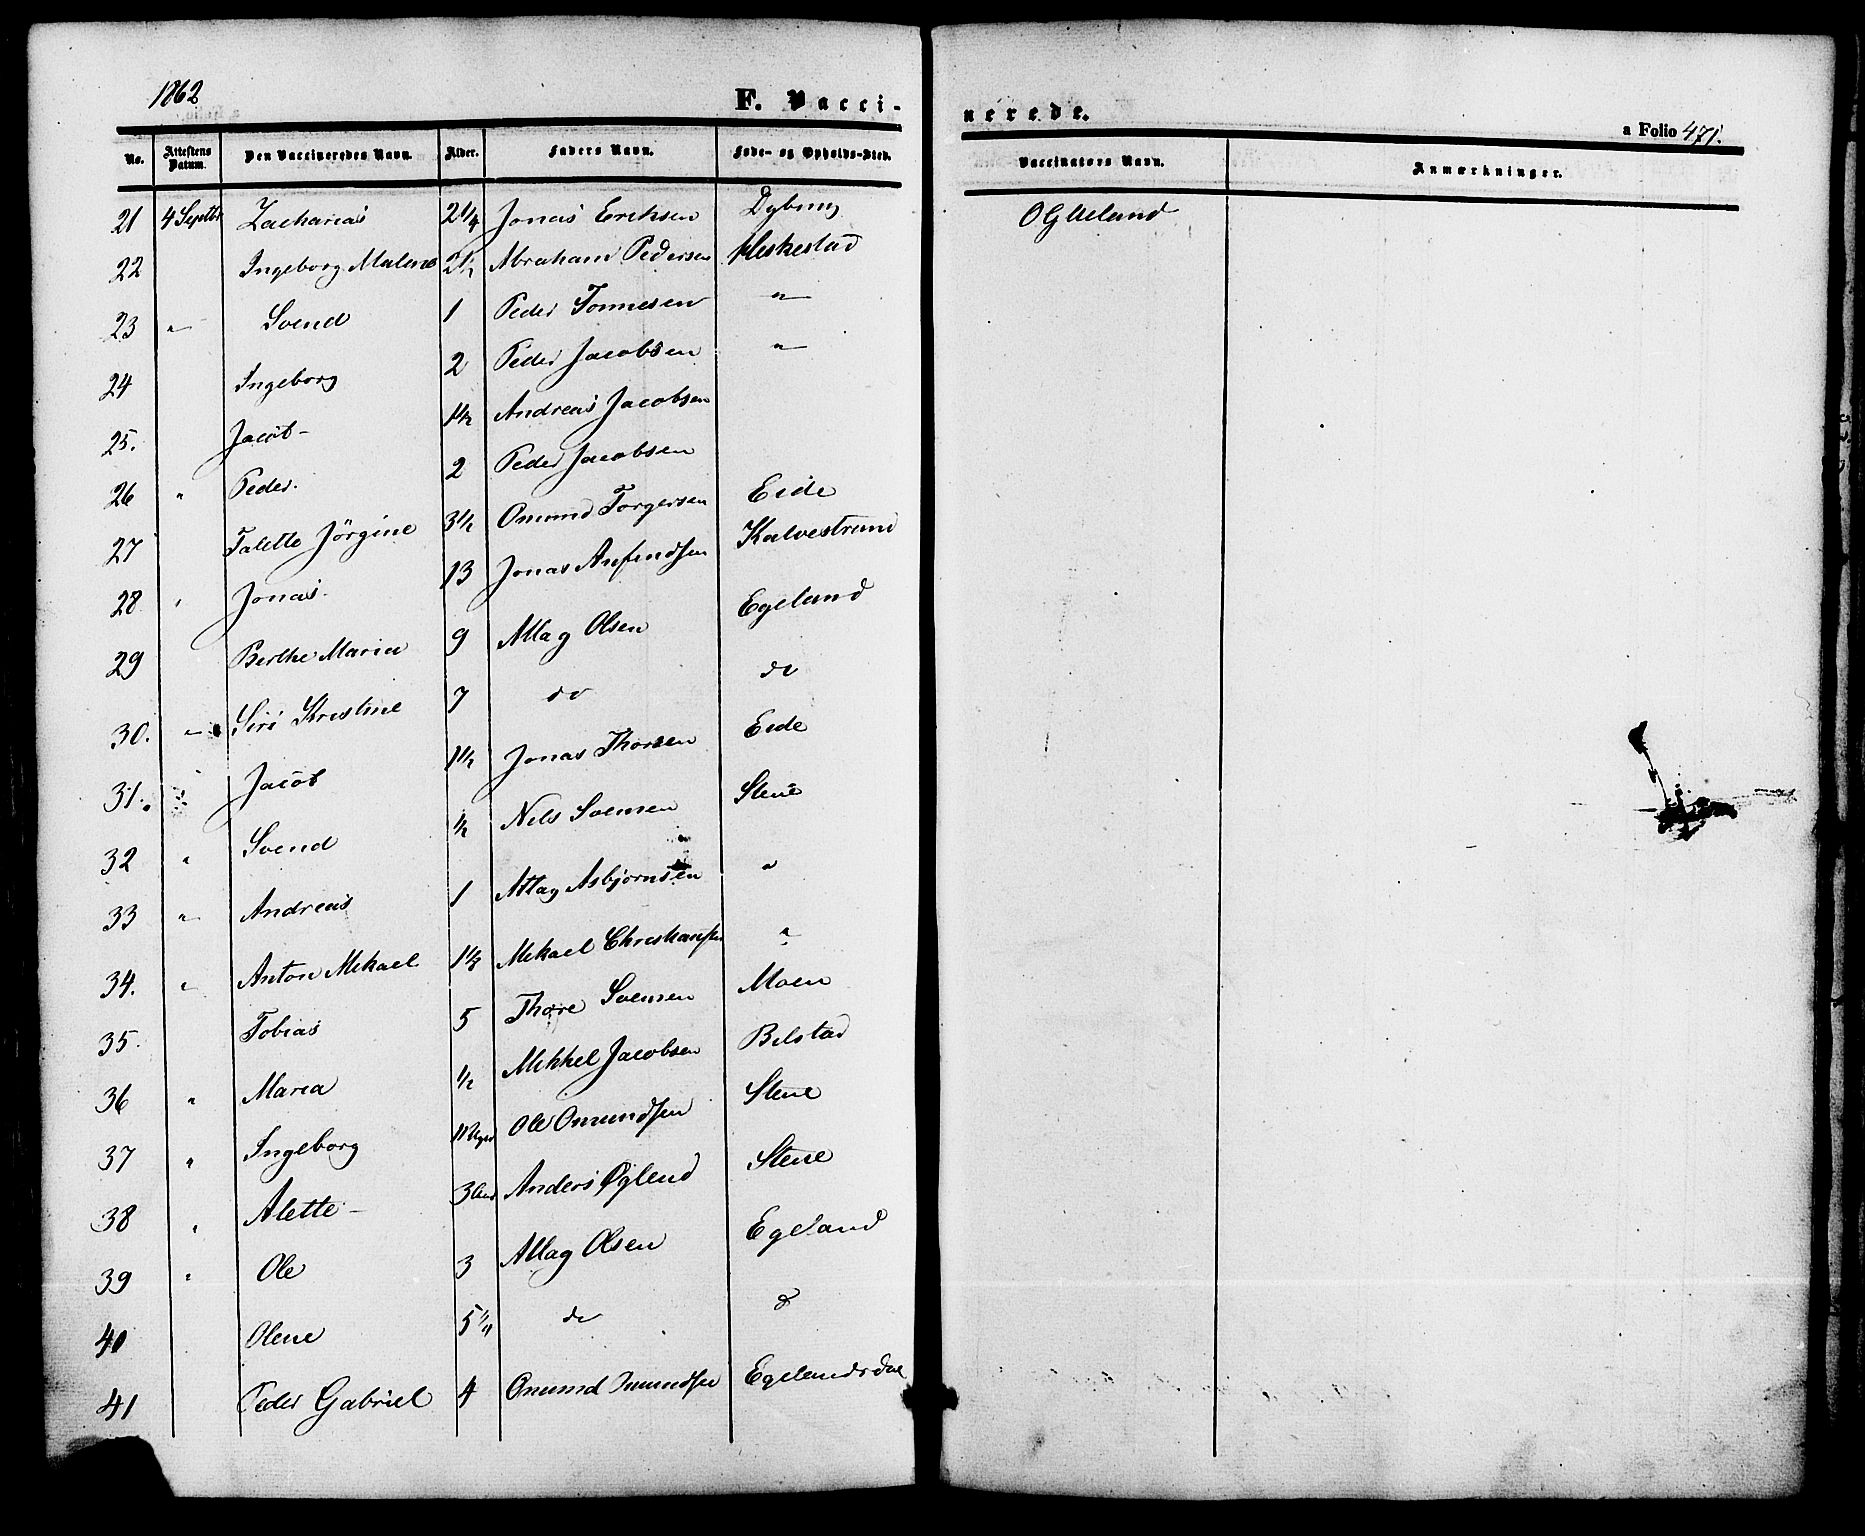 1862
F. Vacci-
nerede.
a Folio 471.
No. Attestens Datum. Den Vaccineredes Navn. Alder. Faders Navn. Føde- og Opholds-Sted. Vaccinators Navn. Anmærkninger.
21 4 Septbr Zacharias 2 1/4 Jonas Eriksen Dybing OGUeland
22 Ingeborg Malene 2 1/2 Abraham Pedersen Heskestad
23 " Svend 1 Peder Tonnesen "
24 Ingeborg 2 Peder Jacobsen "
25. Jacob- 1 1/2 Andreas Jacobsen
26 " Peder. 2 Peder Jacobsen
27 Talette Jörgine 3 1/2 Omund Torgersen Eide
28 " Jonas. 13 Jonas Anfindsen Kalvestrand
29 Berthe Maria 9 Attag Olsen Egeland
30. " Siri Kristine 7 do do
31. " Jacob 1 1/2 Jonas Thorsen Eide
32 " Svend 1/2 Nils Svensen Stene
33 " Andreas 1 Attag Asbjørnsen "
34. " Anton Mikael 1 1/2 Mikael Christiansen "
35. Tobias 5 Thore Svensen Moen
36 " Maria 1/2 Mikkel Jacobsen Bilstad
37 " Ingeborg 11 Uger Ole Omundsen Stene
38 " Alette- 3 Anders Øglend Stene
39 " Ole 3 Attag Olsen Egeland
40 Olene 5 1/4 do do
41 Peder Gabriel 4 Omund Omundsen Egelandsdal